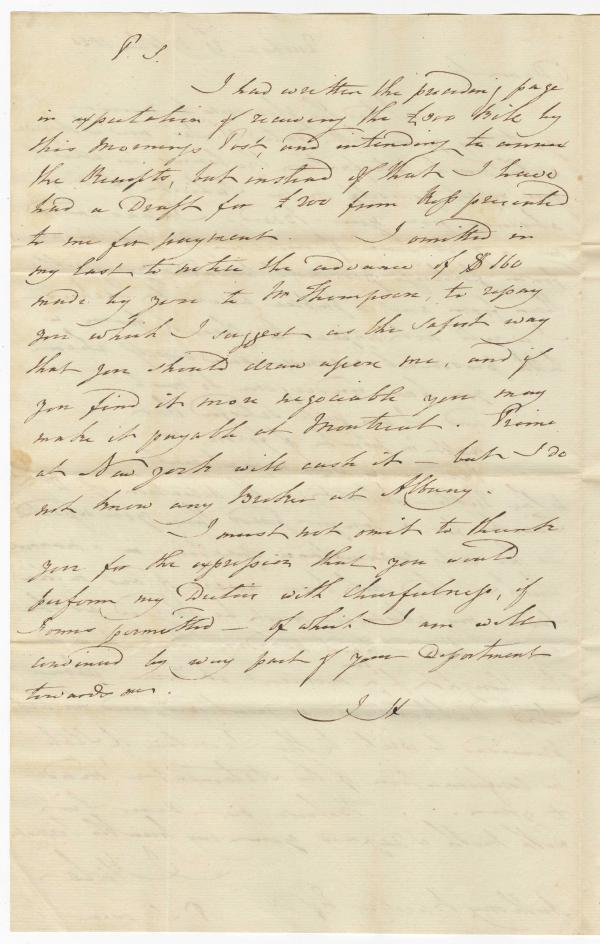 P. S.
I had written the preceding page
in expectation of receiving the £300 Bill by
this Mornings Post, and intending to annex
the Receipts, but instead of that I have
had a Draft for £200 from Ross presented
to me for payment. I omitted in
my last to notice the advance of $160
made by you to Mr Thompson, to repay
you which I suggest as the safest way
that you should draw upon me, and if
you find it more negociable you may
make it payable at Montreal. Prime
at New York will cash it — but I do
not know any Broker at Albany.
I must not omit to thank
you for the expression that you would
perform my Duties with Chearfulness, if
Forms permitted — of which I am well
convinced by every part of your Deportment
towards me.
J H